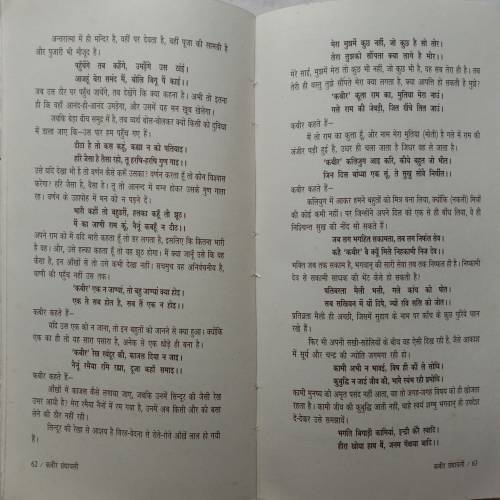 अन्तरात्मा में ही मन्दिर है, वहीं पर देवता है, वहीं पूजा की सामग्री है
और पुजारी भी मौजूद है।
पहुँचेंगे तब कहेंगे, उमड़ेंगे उस ठांई।
अजहूं बेरा समंद मैं, बोलि बिगू पैं कांई।।
जब उस ठौर पर पहुँच जायेंगे, तब देखेंगे कि क्या कहना है। अभी तो इतना
ही कि वहाँ आनंद-ही-आनंद उमड़ेगा, और उसमें यह मन खूब खेलेगा।
जबकि बेड़ा बीच समुद्र में है, तब व्यर्थ बोल-बोलकर क्यों किसी को दुविधा
में डाला जाए कि–उस पार हम पहुँच गए हैं।
दीठा है तो कस कहूं, कह्या न को पतियाइ।
हरि जैसा है तैसा रहो, तू हरषि-हरषि गुण गाइ।।
उसे यदि देखा भी है तो वर्णन कैसे करूँ उसका? वर्णन करता हूँ तो कौन विश्वास
करेगा? हरि जैसा है, वैसा है। तू तो आनन्द में मग्न होकर उसके गुण गाता
रह। वर्णन के ऊहापोह में मन को न पड़ने दे।
भारी कहौं तो बहुडरौं, हलका कहूँ तौ झूठ।
मैं का जाणी राम कूं, नैनूं कबहूं न दीठ।।
अपने राम को मैं यदि भारी कहता हूँ तो डर लगता है, इसलिए कि कितना भारी
है वह। और, उसे हल्का कहता हूँ तो यह झूठ होगा। मैं क्या जानूँ उसे कि वह
कैसा है, इन आँखों से तो उसे कभी देखा नहीं। सचमुच वह अनिर्वचनीय है,
वाणी की पहुँच नहीं उस तक।
'कबीर' एक न जाण्यां, तो बहु जाण्यां क्या होइ।
एक तै सब होत है, सब तैं एक न होइ।।
कबीर कहते हैं–
यदि उस एक को न जाना, तो इन बहुतों को जानने से क्या हुआ। क्योंकि
एक का ही तो यह सारा पसारा है, अनेक से एक थोड़े ही बना है।
'कबीर' रेख स्यंदूर की, काजल दिया न जाइ।
नैनूं रमैया रमि रह्या, दूजा कहाँ समाइ।।
कबीर कहते हैं–
आँखों में काजल कैसे लगाया जाए, जबकि उनमें सिन्दूर की जैसी रेख
उभर आयी है? मेरा रमैया नैनों में रम गया है, उनमें अब किसी और को बसा
लेने की ठौर नहीं रही।
सिन्दूर की रेख से आशय है विरह-वेदना से रोते-रोते आँखें लाल हो गयी
हैं।
62 / कबीर ग्रंथावली
मेरा मुझमें कुछ नहीं, जो कुछ है सो तोर।
तेरा तुझको सौंपता क्या लागै है मोर।।
मेरे साईं, मुझमें मेरा तो कुछ भी नहीं, जो कुछ भी है, वह सब तेरा ही है। तब
तेरी ही वस्तु तुझे सौंपते मेरा क्या लगता है, क्या आपत्ति हो सकती है मुझे?
'कबीर' कूता राम का, मुतिया मेरा नाउं।
गले राम की जेवड़ी, जित खैंचे तित जाउं।
कबीर कहते हैं–
मैं तो राम का कुत्ता हूँ, और नाम मेरा मुतिया (मोती) है गले में राम की
जंजीर पड़ी हुई है, उधर ही चला जाता है जिधर वह ले जाता है।
'कबीर' कलिजुग आइ करि, कीये बहुत जो भीत।
जिन दिल बांध्या एक सूं, ते सुखु सोवै निचींत।।
कबीर कहते हैं–
कलियुग में आकर हमने बहुतों को मित्र बना लिया, क्योंकि (नकली) मित्रों
की कोई कमी नहीं। पर जिन्होंने अपने दिल को एक से ही बाँध लिया, वे ही
निश्चिन्त सुख की नींद सो सकते हैं।
जब लग भगहित सकामता, तब लग निर्फल सेव।
कहै 'कबीर' वै क्यूं मिलै निहकामी निज देव।।
भक्ति जब तक सकाम है, भगवान् की सारी सेवा तब तक निष्फल ही है। निष्कामी
देव से सकामी साधक की भेंट कैसे हो सकती है?
पतिबरता मैली भली, गले कांच को पोत।
सब सखियन में यों दिपै, ज्यों रवि ससि को जोत।।
प्रतिव्रता मैली ही अच्छी, जिसमें सुहाग के नाम पर काँच के कुछ गुरिये पहन
रखे हैं।
फिर भी अपनी सखी-सहेलियों के बीच वह ऐसी दिख रही है, जैसे आकाश
में सूर्य और चन्द्र की ज्योति जगमगा रही हो।
कामी अभी न भावई, विष ही कौं ले सोधि।
कुबुद्धि न जाई जीव की, भावै स्यंभ रहौ प्रमोधि।।
कामी मनुष्य को अमृत पसंद नहीं आता, वह तो जगह-जगह विषय को ही खोजता
रहता है। कामी जीव की कुबुद्धि जाती नहीं, चाहे स्वयं शम्भु भगवान् ही उपदेश
दे-देकर उसे समझावें।
भगति बिगाड़ी कामियां, इन्द्री केरै स्वादि।
हीरा खोया हाथ थैं, जनम गँवाया बादि।।
कबीर ग्रंथावली / 63